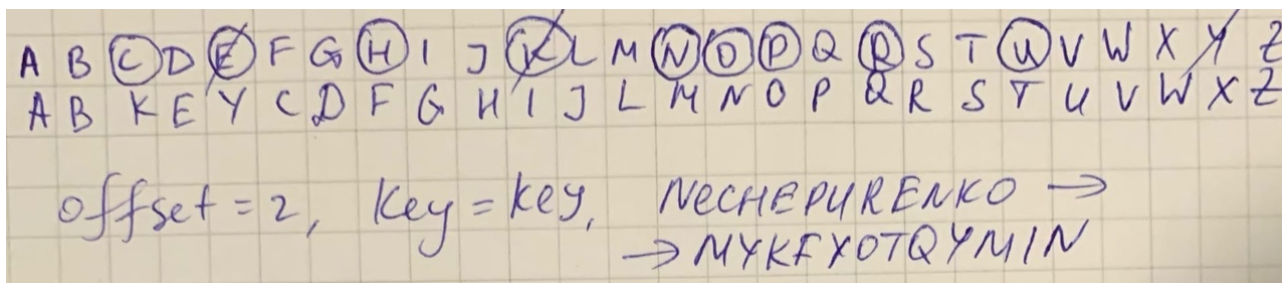 A B C D E F G H I J K L M N O P Q R S T U V W X Y Z
A B K E Y C D F G H I J L M N O P Q R S T U V W X Z
Offset = 2, Key = key, NeCHEPURENKO →
→ MYKFYOTQYMIN